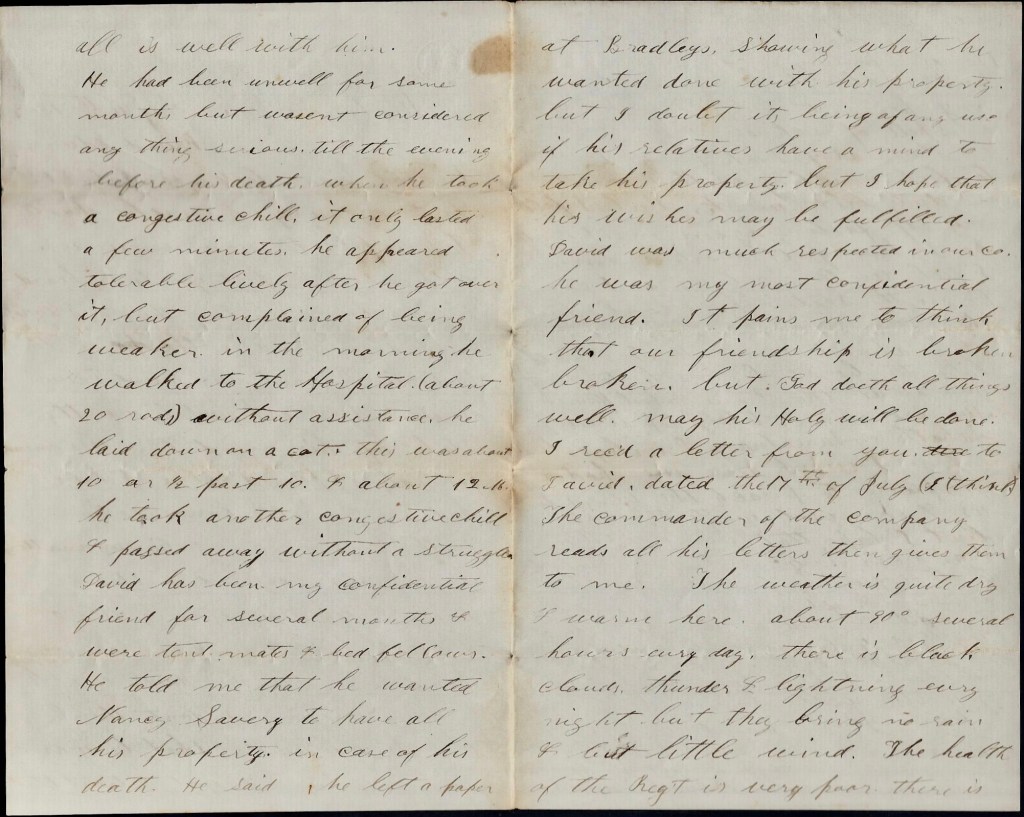 all is well with him.
He had been unwell for some
months but wasent considered
any thing serious. till the evening
before his death. when he took
a congestive chill. it only lasted
a few minutes. he appeared
tolerable lively after he got over
it, but complained of being
weaker. in the morning he
walked to the Hospital. (about
20 rods) without assistance. he
laid down on a cot. this was about
10 or ½ past 10. & about 12 M.
he took another congestive chill
& passed away without a struggle
David has been my confidential
friend for several months &
were tent mates & bed fellows.
He told me that he wanted
Nancy Savery to have all
his property. in case of his
death. He said he left a paper
at Bradleys, showing what he
wanted done with his property.
but I doubt its being of any use
if his relatives have a mind to
take his property. but I hope that
his wishes may be fulfilled.
David was much respected in our co.
he was my most confidential
friend. It pains me to think
that our friendship is broken
broken. but. God doeth all things
well. may his Holy will be done.
I rec'd a letter from you to
David. dated the 7th of July (I think)
The commander of the company
reads all his letters then gives them
to me. The weather is quite dry
& warm here. about 90° several
hours evry day. there is black
clouds, thunder & lightning evry
night but they bring no rain
& but little wind. The health
of the Regt is very poor. there is